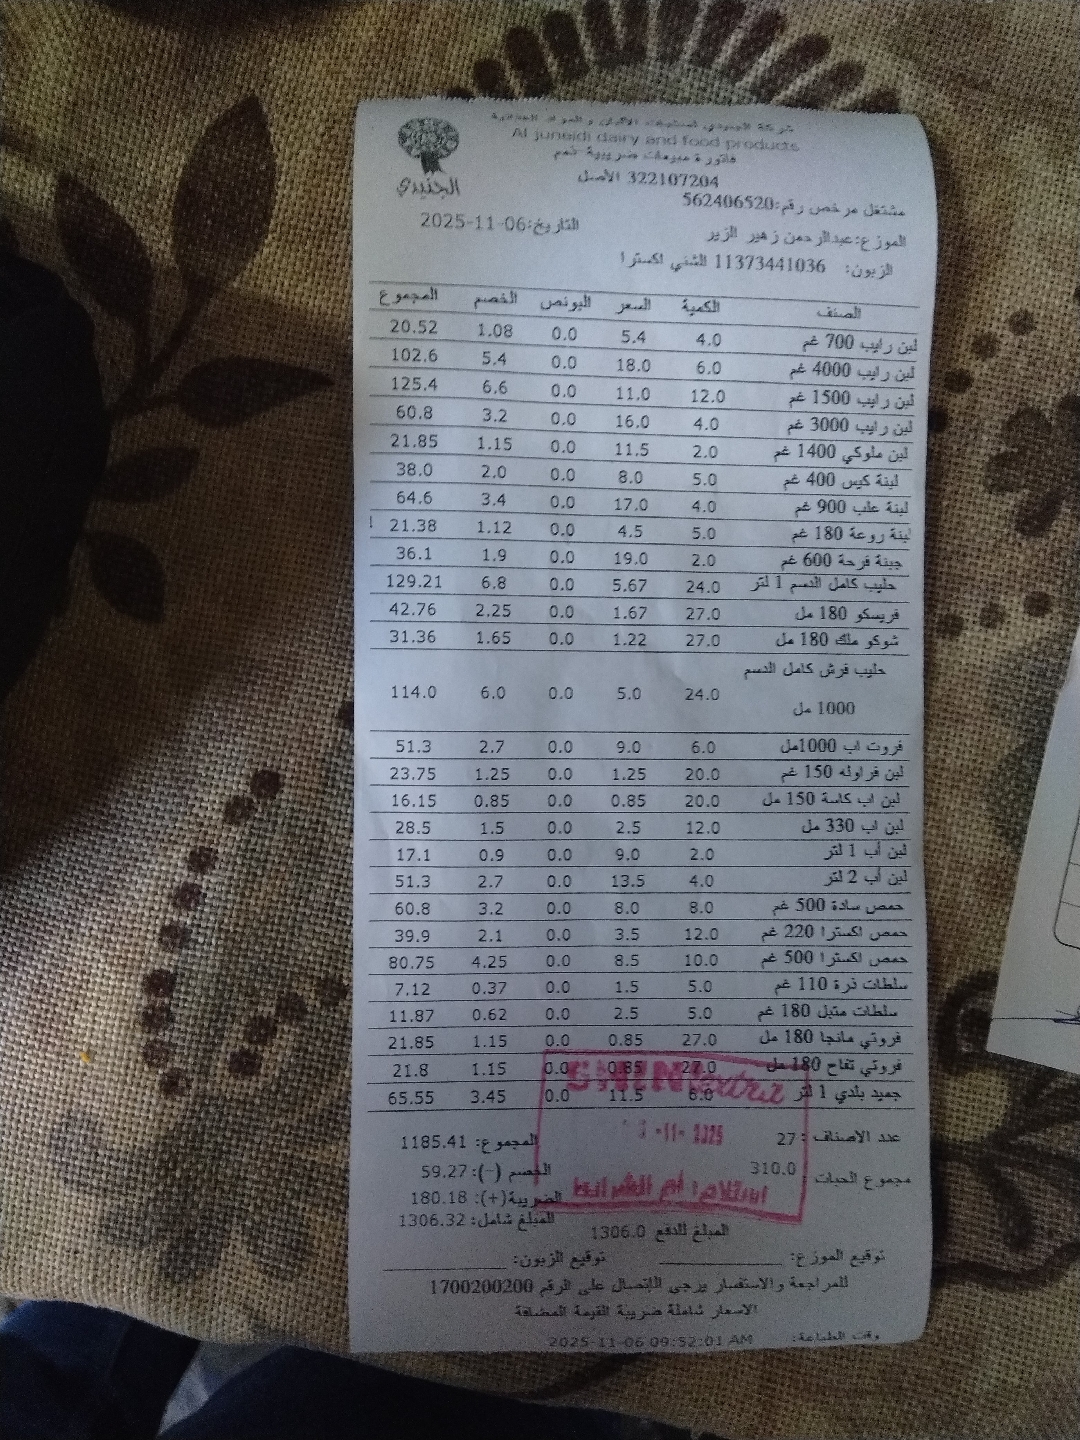 شركة الجنيدي لمنتجات الألبان و المواد الغذائية
Al juneidi dairy and food products
الجنيدي
فاتورة مبيعات ضريبية ذمم
322107204 الأصل
مشتغل مرخص رقم:562406520
الموزع:عبدالرحمن زهير الزير التاريخ:2025-11-06
الزبون: 11373441036 الشني اكسترا
الصنف الكمية السعر البونص الخصم المجموع
لبن رايب 700 غم 4.0 5.4 0.0 1.08 20.52
لبن رايب 4000 غم 6.0 18.0 0.0 5.4 102.6
لبن رايب 1500 غم 12.0 11.0 0.0 6.6 125.4
لبن رايب 3000 غم 4.0 16.0 0.0 3.2 60.8
لبن ملوكي 1400 غم 2.0 11.5 0.0 1.15 21.85
لبنة كيس 400 غم 5.0 8.0 0.0 2.0 38.0
لبنة علب 900 غم 4.0 17.0 0.0 3.4 64.6
لبنة روعة 180 غم 5.0 4.5 0.0 1.12 21.38
جبنة فرحة 600 غم 2.0 19.0 0.0 1.9 36.1
حليب كامل الدسم 1 لتر 24.0 5.67 0.0 6.8 129.21
فريسكو 180 مل 27.0 1.67 0.0 2.25 42.76
شوكو ملك 180 مل 27.0 1.22 0.0 1.65 31.36
حليب فرش كامل الدسم
1000 مل 24.0 5.0 0.0 6.0 114.0
فروت اب 1000مل 6.0 9.0 0.0 2.7 51.3
لبن فراوله 150 غم 20.0 1.25 0.0 1.25 23.75
لبن اب كاسة 150 مل 20.0 0.85 0.0 0.85 16.15
لبن اب 330 مل 12.0 2.5 0.0 1.5 28.5
لبن أب 1 لتر 2.0 9.0 0.0 0.9 17.1
لبن أب 2 لتر 4.0 13.5 0.0 2.7 51.3
حمص سادة 500 غم 8.0 8.0 0.0 3.2 60.8
حمص اكسترا 220 غم 12.0 3.5 0.0 2.1 39.9
حمص اكسترا 500 غم 10.0 8.5 0.0 4.25 80.75
سلطات ذرة 110 غم 5.0 1.5 0.0 0.37 7.12
سلطات متبل 180 غم 5.0 2.5 0.0 0.62 11.87
فروتي مانجا 180 مل 27.0 0.85 0.0 1.15 21.85
فروتي تفاح 180 مل 27.0 0.85 0.0 1.15 21.8
جميد بلدي 1 لتر 6.0 11.5 0.0 3.45 65.55
عدد الاصناف : 27 المجموع: 1185.41
مجموع الحبات : 310.0 الخصم (-): 59.27
الضريبة(+): 180.18
المبلغ شامل: 1306.32
المبلغ للدفع 1306.0
استلام أم الشرايط
توقيع الموزع: توقيع الزبون:
للمراجعة والاستفسار يرجى الإتصال على الرقم 1700200200
الاسعار شاملة ضريبة القيمة المضافة
وقت الطباعة: 2025-11-06 09:52:01 AM